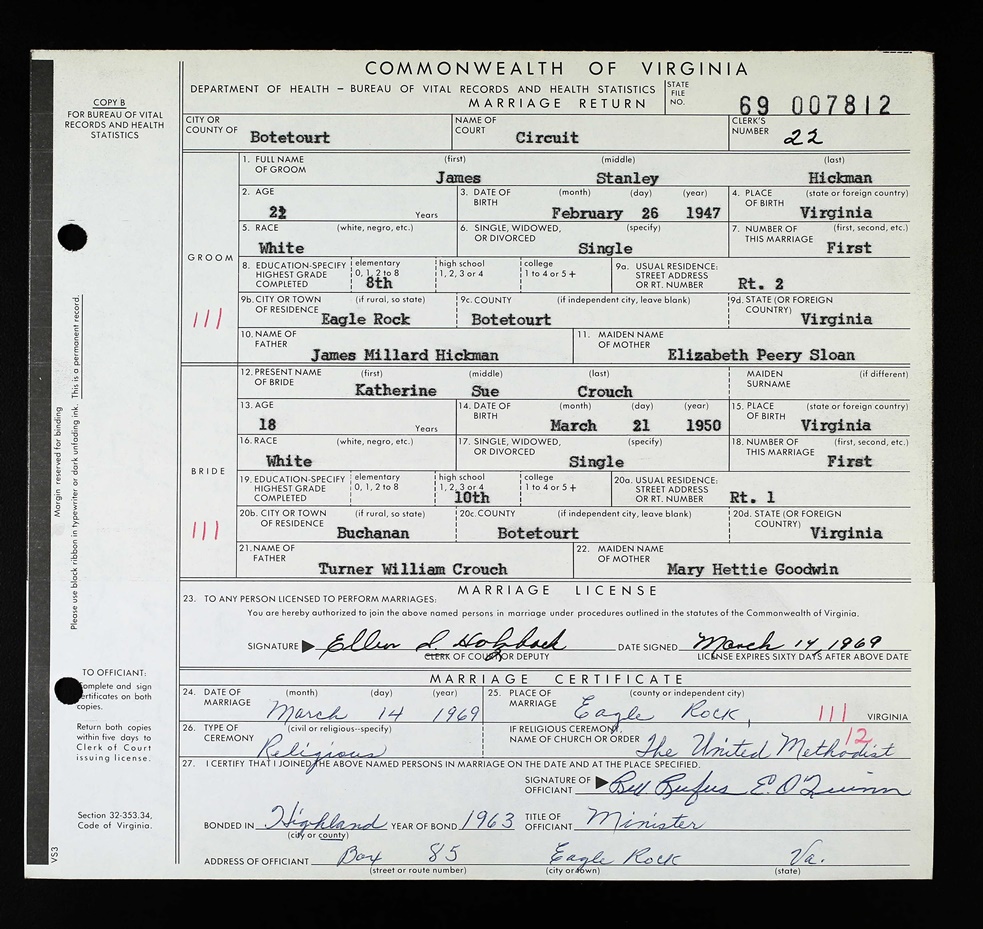 COMMONWEALTH OF VIRGINIA
DEPARTMENT OF HEALTH – BUREAU OF VITAL RECORDS AND HEALTH STATISTICS
MARRIAGE RETURN
STATE FILE NO. 69 007812
COPY B
FOR BUREAU OF VITAL
RECORDS AND HEALTH
STATISTICS
CITY OR COUNTY OF Botetourt NAME OF COURT Circuit CLERK'S NUMBER 22
GROOM
1. FULL NAME OF GROOM (first) James (middle) Stanley (last) Hickman
2. AGE 22 Years 3. DATE OF BIRTH (month) February (day) 26 (year) 1947 4. PLACE OF BIRTH (state or foreign country) Virginia
5. RACE (white, negro, etc.) White 6. SINGLE, WIDOWED, OR DIVORCED (specify) Single 7. NUMBER OF THIS MARRIAGE (first, second, etc.) First
8. EDUCATION-SPECIFY HIGHEST GRADE COMPLETED elementary 0, 1, 2 to 8 8th high school 1, 2, 3 or 4 college 1 to 4 or 5+ 9a. USUAL RESIDENCE: STREET ADDRESS OR RT. NUMBER Rt. 2
9b. CITY OR TOWN OF RESIDENCE (if rural, so state) Eagle Rock 9c. COUNTY (if independent city, leave blank) Botetourt 9d. STATE (OR FOREIGN COUNTRY) Virginia
111
10. NAME OF FATHER James Millard Hickman 11. MAIDEN NAME OF MOTHER Elizabeth Peery Sloan
BRIDE
12. PRESENT NAME OF BRIDE (first) Katherine (middle) Sue (last) Crouch MAIDEN SURNAME (if different)
13. AGE 18 Years 14. DATE OF BIRTH (month) March (day) 21 (year) 1950 15. PLACE OF BIRTH (state or foreign country) Virginia
16. RACE (white, negro, etc.) White 17. SINGLE, WIDOWED, OR DIVORCED (specify) Single 18. NUMBER OF THIS MARRIAGE (first, second, etc.) First
19. EDUCATION-SPECIFY HIGHEST GRADE COMPLETED elementary 0, 1, 2 to 8 high school 1, 2, 3 or 4 10th college 1 to 4 or 5+ 20a. USUAL RESIDENCE: STREET ADDRESS OR RT. NUMBER Rt. 1
20b. CITY OR TOWN OF RESIDENCE (if rural, so state) Buchanan 20c. COUNTY (if independent city, leave blank) Botetourt 20d. STATE (OR FOREIGN COUNTRY) Virginia
111
21. NAME OF FATHER Turner William Crouch 22. MAIDEN NAME OF MOTHER Mary Hettie Goodwin
MARRIAGE LICENSE
23. TO ANY PERSON LICENSED TO PERFORM MARRIAGES:
You are hereby authorized to join the above named persons in marriage under procedures outlined in the statutes of the Commonwealth of Virginia.
SIGNATURE Ellen I. Holzback DATE SIGNED March 14, 1969
CLERK OF COURT OR DEPUTY LICENSE EXPIRES SIXTY DAYS AFTER ABOVE DATE
MARRIAGE CERTIFICATE
24. DATE OF MARRIAGE (month) March (day) 14 (year) 1969 25. PLACE OF MARRIAGE (county or independent city) Eagle Rock, 111 VIRGINIA
26. TYPE OF CEREMONY (civil or religious--specify) Religious IF RELIGIOUS CEREMONY, NAME OF CHURCH OR ORDER The United Methodist 12
27. I CERTIFY THAT I JOINED THE ABOVE NAMED PERSONS IN MARRIAGE ON THE DATE AND AT THE PLACE SPECIFIED.
SIGNATURE OF OFFICIANT Bill Rufus E. O'Quinn
BONDED IN Highland (city or county) YEAR OF BOND 1963 TITLE OF OFFICIANT Minister
ADDRESS OF OFFICIANT Box 85 Eagle Rock Va.
(street or route number) (city or town) (state)
Margin reserved for binding
Please use black ribbon in typewriter or dark unfading ink. This is a permanent record.
TO OFFICIANT:
Complete and sign
certificates on both
copies.
Return both copies
within five days to
Clerk of Court
issuing license.
Section 32-353.34,
Code of Virginia.
VS3